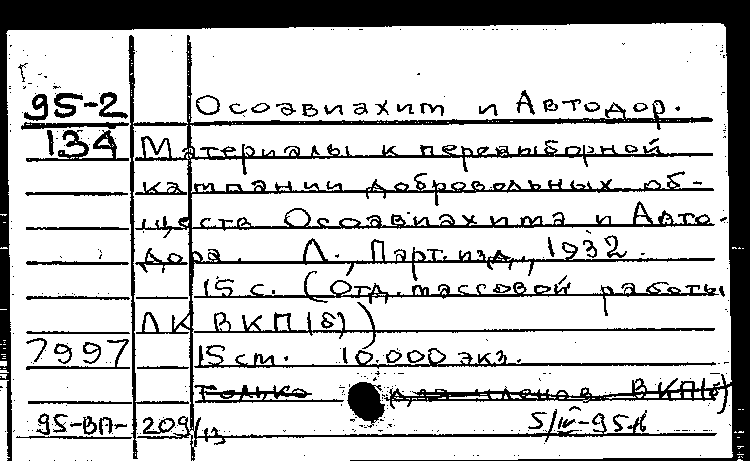 95-2 Осоавиахим и Автодор.
134 Материалы к перевыборной
кампании добровольных об-
ществ Осоавиахима и Авто-
дора. Л., Партизд., 1932.
15 с. (Отд. массовой работы
ЛК ВКП(б))
7997 15 см. 10.000 экз.
Только для членов ВКП(б)
95-ВП- 209/13 5/IV-95